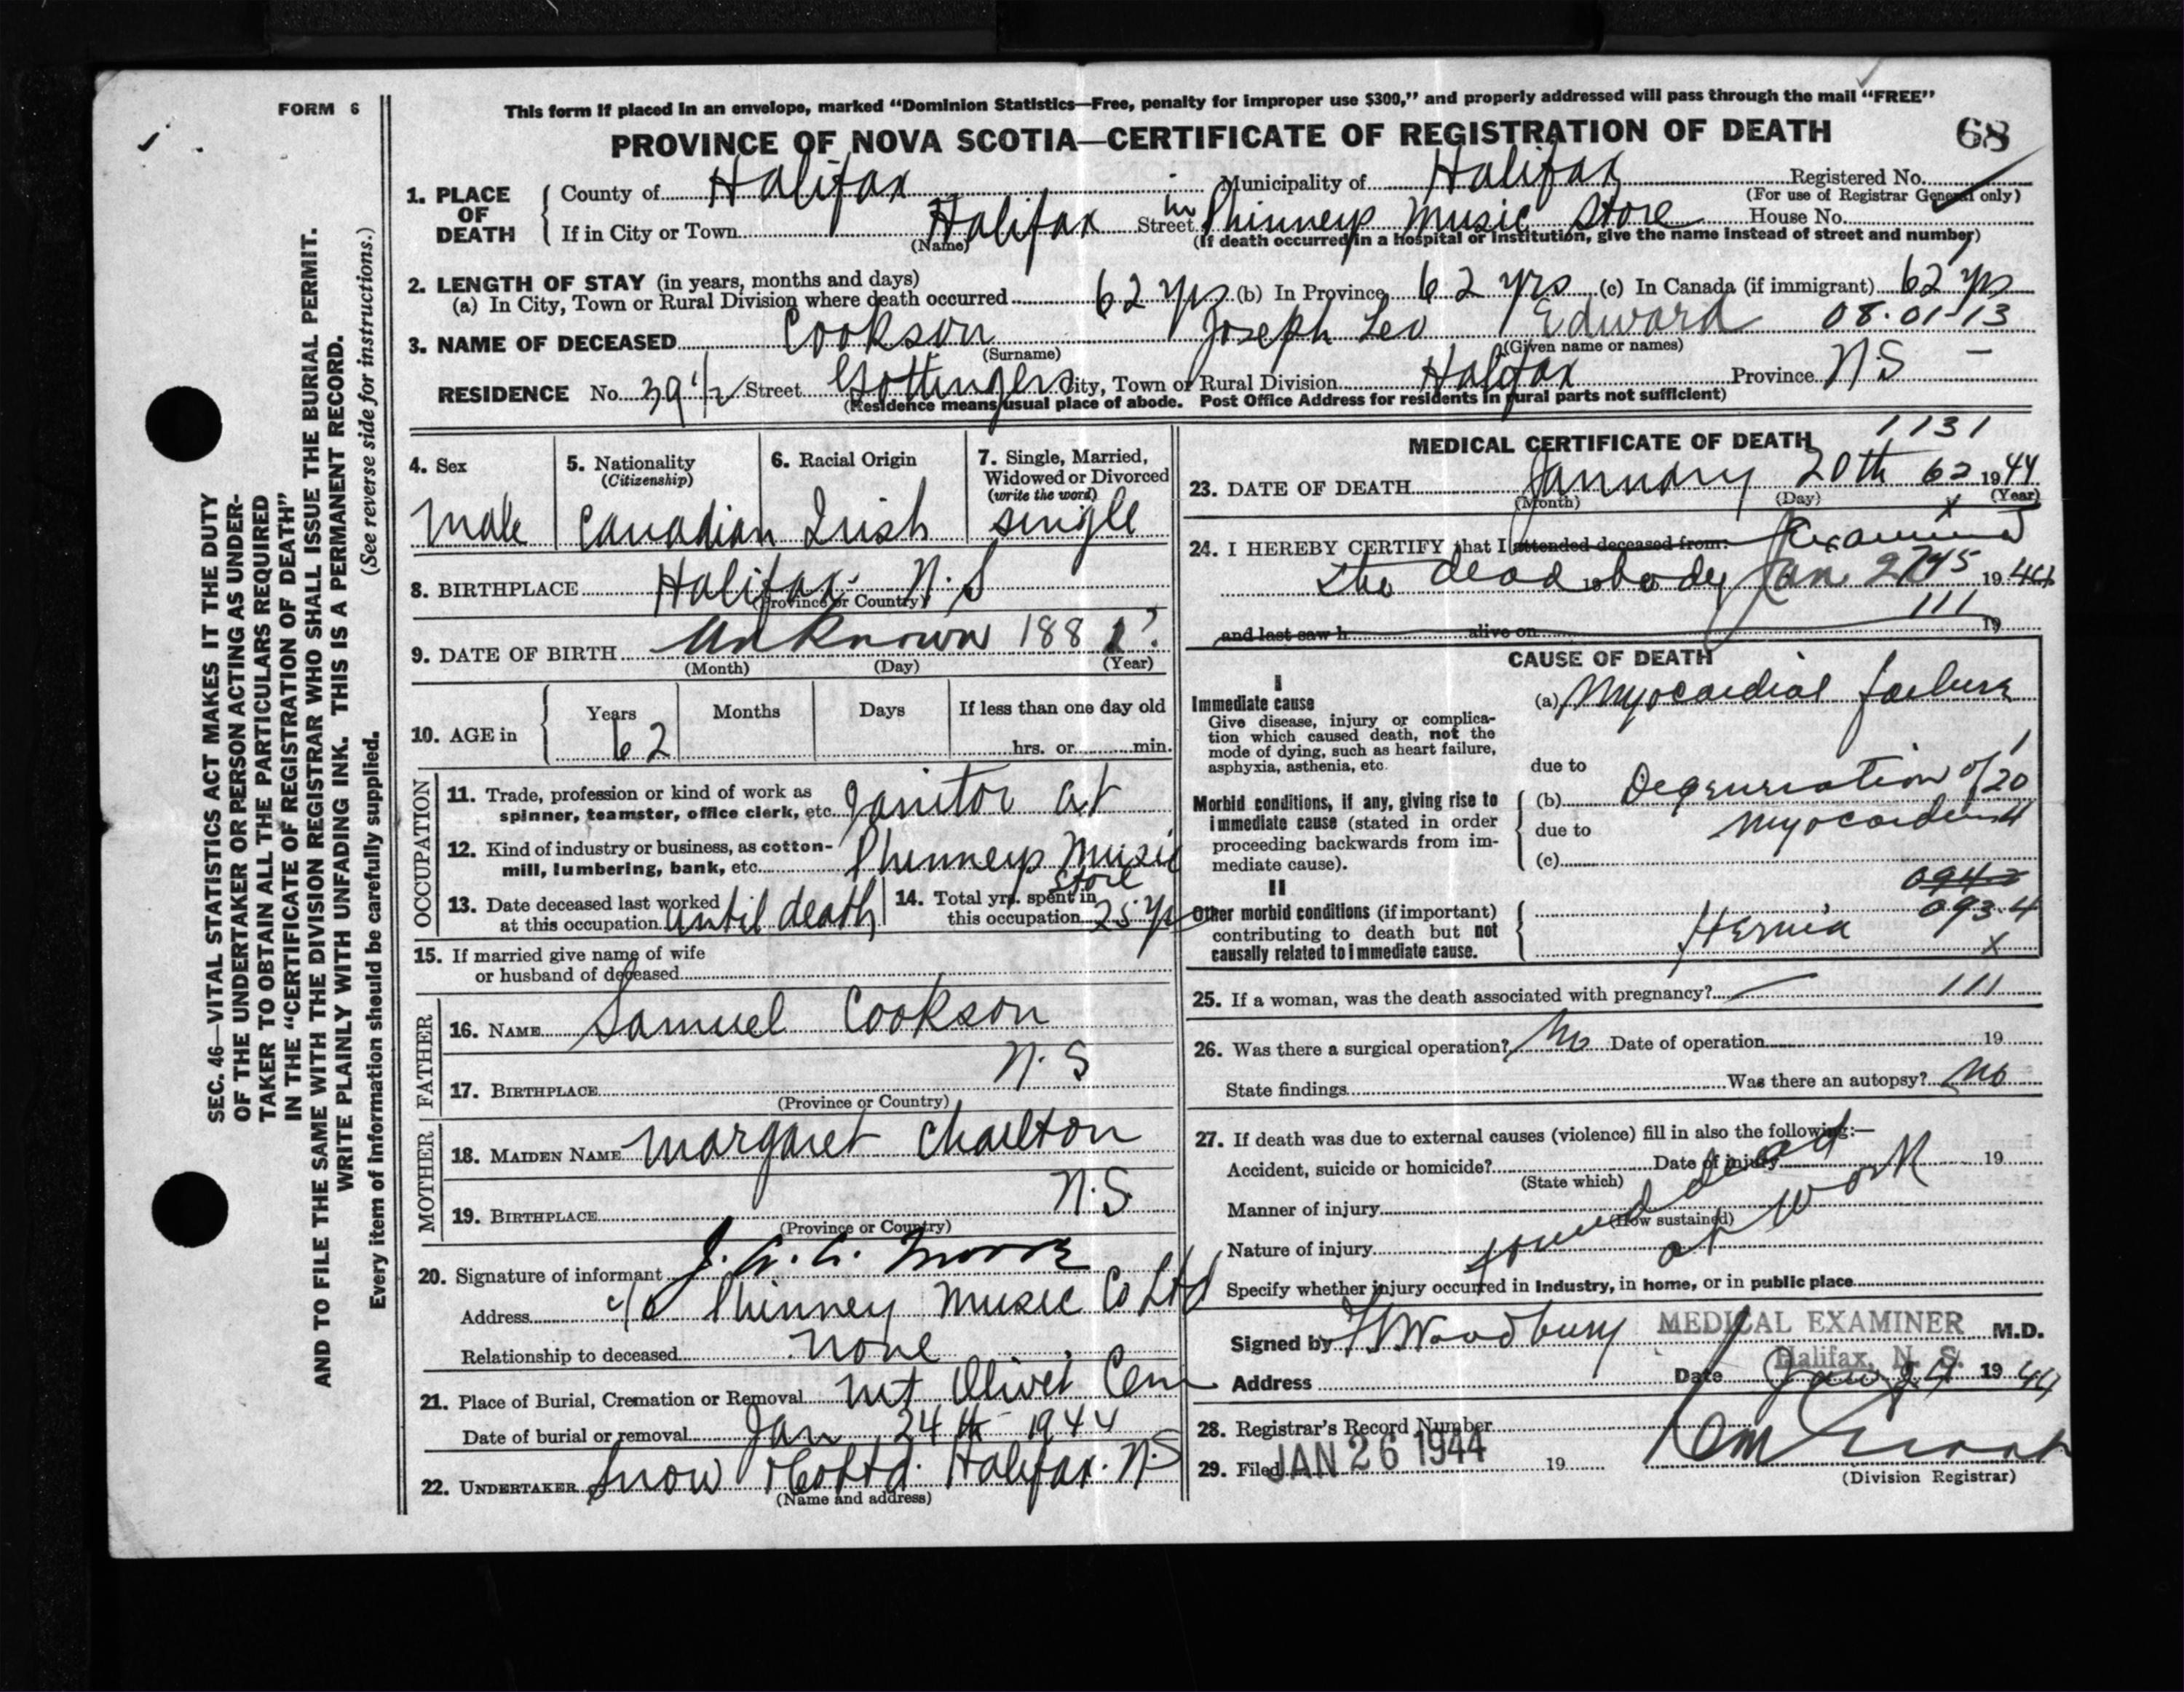 FORM 6
This form if placed in an envelope, marked “Dominion Statistics—Free, penalty for improper use $300,” and properly addressed will pass through the mail “FREE”
PROVINCE OF NOVA SCOTIA—CERTIFICATE OF REGISTRATION OF DEATH 68
SEC. 46—VITAL STATISTICS ACT MAKES IT THE DUTY
OF THE UNDERTAKER OR PERSON ACTING AS UNDER-
TAKER TO OBTAIN ALL THE PARTICULARS REQUIRED
IN THE “CERTIFICATE OF REGISTRATION OF DEATH”
AND TO FILE THE SAME WITH THE DIVISION REGISTRAR WHO SHALL ISSUE THE BURIAL PERMIT.
WRITE PLAINLY WITH UNFADING INK. THIS IS A PERMANENT RECORD.
(See reverse side for instructions.)
Every item of information should be carefully supplied.
1. PLACE OF DEATH
County of Halifax Municipality of Halifax Registered No.
(For use of Registrar General only)
If in City or Town Halifax Street in Phinneys Music Store House No.
(Name) (If death occurred in a hospital or institution, give the name instead of street and number)
2. LENGTH OF STAY (in years, months and days)
(a) In City, Town or Rural Division where death occurred 62 yrs (b) In Province 62 yrs (c) In Canada (if immigrant) 62 yrs
3. NAME OF DECEASED Cookson Joseph Leo Edward 08.01.13
(Surname) (Given name or names)
RESIDENCE No. 39 1/2 Street Gottingen City, Town or Rural Division Halifax Province N.S
(Residence means usual place of abode. Post Office Address for residents in rural parts not sufficient)
4. Sex
Male
5. Nationality
(Citizenship)
Canadian
6. Racial Origin
Irish
7. Single, Married,
Widowed or Divorced
(write the word)
single
8. BIRTHPLACE Halifax N.S
(Province or Country)
9. DATE OF BIRTH Unknown 188 ?
(Month) (Day) (Year)
10. AGE in
Years Months Days If less than one day old
62 hrs. or min.
OCCUPATION
11. Trade, profession or kind of work as
spinner, teamster, office clerk, etc. Janitor at
12. Kind of industry or business, as cotton-
mill, lumbering, bank, etc. Phinneys Music
Store
13. Date deceased last worked
at this occupation until death
14. Total yrs. spent in
this occupation 25 yrs
15. If married give name of wife
or husband of deceased
FATHER
16. NAME Samuel Cookson
17. BIRTHPLACE N.S
(Province or Country)
MOTHER
18. MAIDEN NAME Margaret Charlton
19. BIRTHPLACE N.S.
(Province or Country)
20. Signature of informant Moore
Address c/o Phinney Music Co Ltd
Relationship to deceased None
21. Place of Burial, Cremation or Removal Mt Olivet Cem
Date of burial or removal Jan 24th 1944
22. UNDERTAKER Snow & Co Ltd. Halifax. N.S
(Name and address)
MEDICAL CERTIFICATE OF DEATH 1131
23. DATE OF DEATH January 20th 62 1944
(Month) (Day) (Year)
x
24. I HEREBY CERTIFY that I attended deceased from: examined
the dead body Jan. 19 44
111
and last saw h alive on 19
CAUSE OF DEATH
I
Immediate cause
Give disease, injury or complica-
tion which caused death, not the
mode of dying, such as heart failure,
asphyxia, asthenia, etc.
(a) Myocardial failure
due to
Morbid conditions, if any, giving rise to
immediate cause (stated in order
proceeding backwards from im-
mediate cause).
(b) Degeneration of
due to myocardium
(c)
II
Other morbid conditions (if important)
contributing to death but not
causally related to immediate cause.
0942
093.4
Hernia
x
25. If a woman, was the death associated with pregnancy? 111
26. Was there a surgical operation? No Date of operation 19
State findings Was there an autopsy? No
27. If death was due to external causes (violence) fill in also the following:—
Accident, suicide or homicide? Date of injury 19
(State which)
Manner of injury
(How sustained)
found dead
at work
Nature of injury
Specify whether injury occurred in industry, in home, or in public place
Signed by Woodbury MEDICAL EXAMINER M.D.
Halifax, N. S.
Address Date Jan 24 19 44
28. Registrar's Record Number
29. Filed JAN 26 1944 19
(Division Registrar)